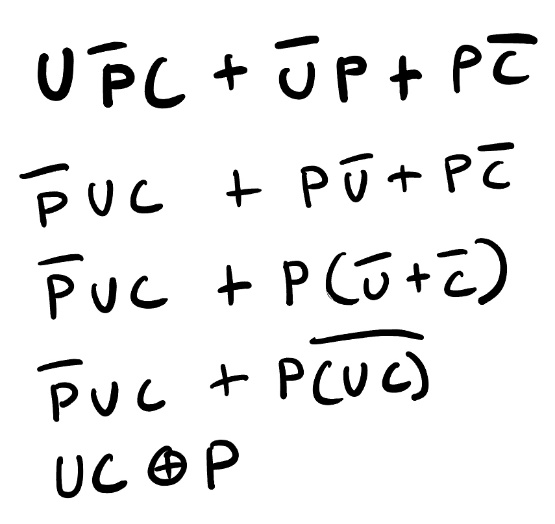 U P̅ C + U̅ P + P C̅
P̅ U C + P U̅ + P C̅
P̅ U C + P (U̅ + C̅)
P̅ U C + P (̅U̅ ̅C̅)̅
U C ⊕ P